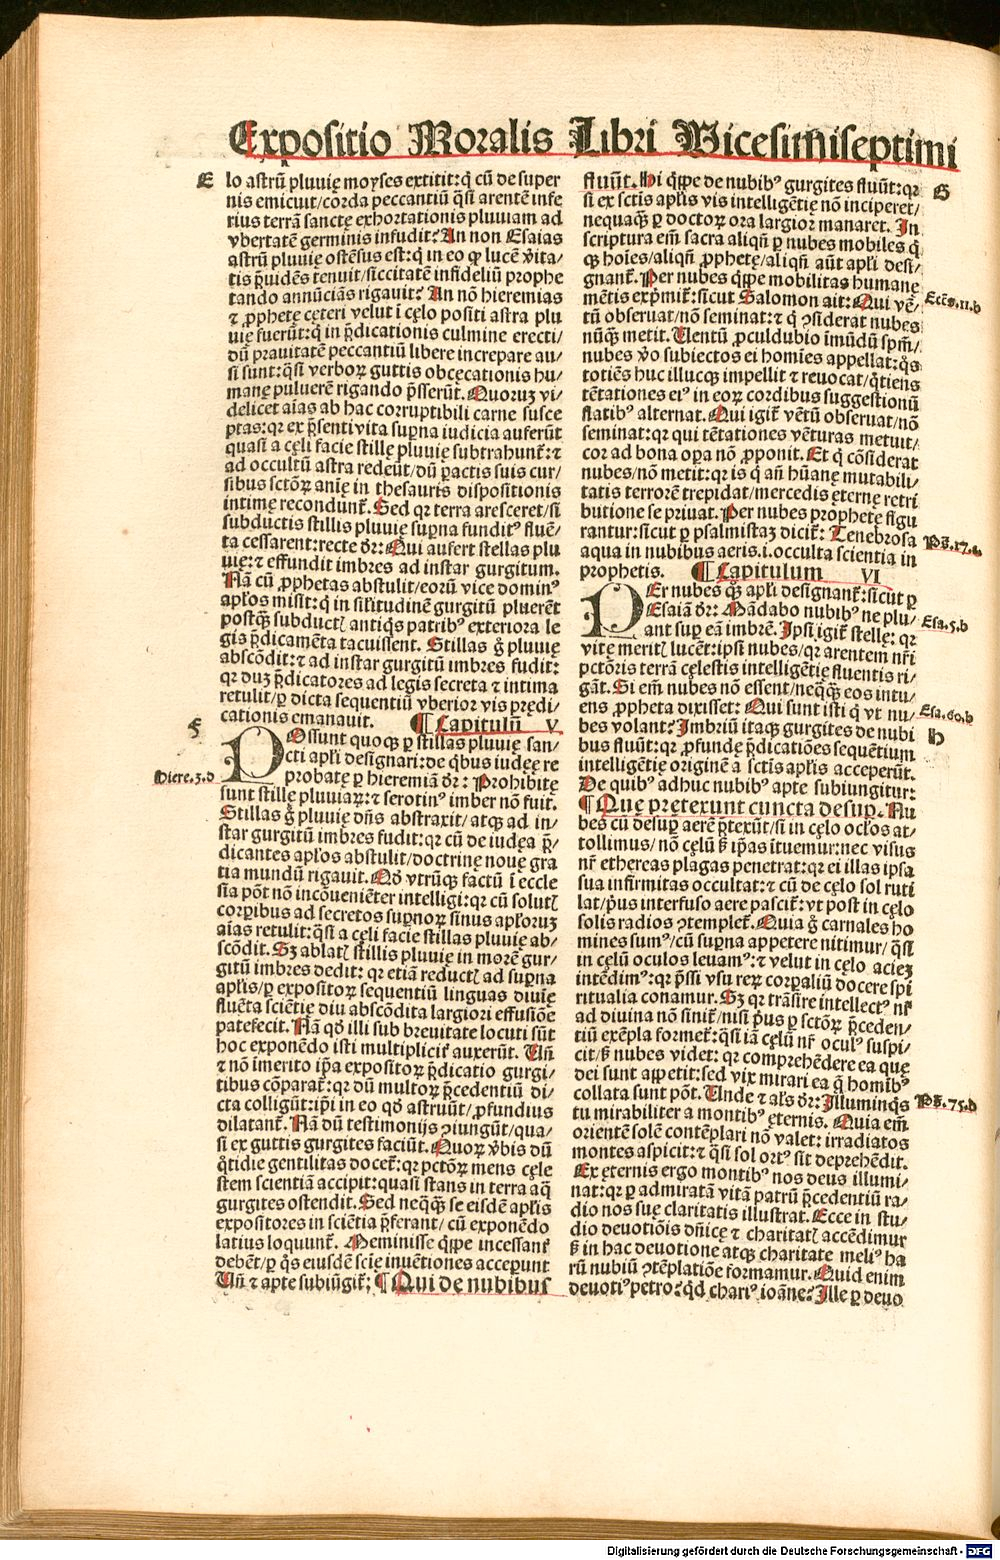 Expositio Moralis Libri Vicesimiseptimi
E
lo astrū pluuię moyses extitit: q̇ cū de super
nis emicuit/corda peccantiū q̄si arentē infe
rius terrā sanctę exhortationis pluuiam ad
vbertatē germinis infudit? An non Esaias
astrū pluuię ostēsus est: q̇ in eo ꝙ lucē v̄ita/
tis p̄uidēs tenuit/siccitatē infideliū prophe
tando annūciās rigauit? An nō hieremias
⁊ ꝓphetę cęteri velut ī cęlo positi astra plu
uię fuerūt: q̇ in p̄dicationis culmine erecti/
dū prauitatē peccantiū libere increpare au/
si sunt: q̄si verboꝝ guttis obcęcationis hu/
manę puluerē rigando p̄sserūt. Quoruꝫ vi/
delicet aīas ab hac corruptibili carne susce
ptas: qꝛ ex p̄senti vita sup̄na iudicia auferūt
quasi a cęli facie stillę pluuię subtrahunt̄: ⁊
ad occultū astra redeūt/dū ꝑactis suis cur/
sibus sctōꝝ anię in thesauris dispositionis
intimę recondunt̄. Sed qꝛ terra aresceret/si
subductis stillis pluuię sup̄na funditꝰ fluē/
ta cessarent: recte dr̄: Qui aufert stellas plu
uię: ⁊ effundit imbres ad instar gurgitum.
Nā cū ꝓphetas abstulit/eorū vice dominꝰ
apłos misit: q̇ in sil̄itudinē gurgitū pluerēt
postꝙ̄ subductꝭ antiq̇s patribꝰ exteriora le
gis p̄dicamēta tacuissent. Stillas g̊ pluuię
abscōdit: ⁊ ad instar gurgitū imbres fudit:
qꝛ duꝫ p̄dicatores ad legis secreta ⁊ intima
retulit/ꝑ dicta sequentiū vberior vis prędi/
cationis emanauit. ¶ Capitulū V.
F
POssunt quoqꝫ ꝑ stillas pluuię san/
cti apłi designari: de q̇bus iudęę re
probatę ꝑ hieremiā dr̄: Prohibitę
Hiere.3.d
sunt stillę pluuiaꝝ: ⁊ serotinꝰ imber nō fuit.
Stillas g̊ pluuię dn̄s abstraxit/atqꝫ ad in/
star gurgitū imbres fudit: qꝛ cū de iudęa p̄/
dicantes apłos abstulit/doctrinę nouę gra
tia mundū rigauit. Qd̓ vtrūqꝫ factū ī eccle
sia pōt nō incōueniēter intelligi: qꝛ cū solutꝭ
corꝑibus ad secretos sup̄noꝝ sinus apłoruꝫ
aīas retulit: q̄si a cęli facie stillas pluuię ab/
scōdit. Sꝫ ablatꝭ stillis pluuię in morē gur/
gitū imbres dedit: qꝛ etiā reductꝭ ad sup̄na
apłis/ꝑ expositoꝝ sequentiū linguas diuię
fluēta sciētię diu abscōdita largiori effusiōe
patefecit. Nā qd̓ illi sub breuitate locuti sūt
hoc exponēdo isti multiplicit̓ auxerūt. Uñ
⁊ nō imerito ip̄a expositoꝝ p̄dicatio gurgi/
tibus cōparat̄: qꝛ dū multoꝝ p̄cedentiū di/
cta colligūt: ip̄i in eo qd̓ astruūt/ꝓfundius
dilatant̄. Nā dū testimonijs ꝯiungūt/qua/
si ex guttis gurgites faciūt. Quoꝝ v̄bis dū
q̊tidie gentilitas docet̄: qꝛ pctōꝝ mens cęle
stem scientiā accipit: quasi stans in terra aq̄
gurgites ostendit. Sed neq̄qꝫ se eisdē apłis
expositores in sciētia p̄ferant/ cū exponēdo
latius loquunt̄. Meminisse q̇ppe incessant̓
debēt/ꝑ q̊s eiusdē scię̄ inuētiones acceꝑunt
Uñ ⁊ apte subiūgit̄; ¶ Qui de nubibus
fluūt. Hi q̇ppe de nubibꝰ gurgites fluūt: qꝛ
G
si ex sctis apłis vis intelligētię nō inciperet/
nequaqꝫ ꝑ doctoꝝ ora largior manaret. In
scriptura em̄ sacra aliqn̄ ꝑ nubes mobiles q̇
qꝫ hoīes/aliqn̄ ꝓphetę/aliqn̄ aūt apłi desi/
gnant̄. Per nubes q̇ppe mobilitas humanę
mētis exp̄mit̄: sicut Salomon ait: Qui vē/
Eccs.11.b
tū obseruat/nō seminat: ⁊ q̇ ꝯsiderat nubes
nūqꝫ metit. Uentū ꝓculdubio īmūdū spm̄/
nubes v̄o subiectos ei homīes appellat: q̊s
totiēs huc illucqꝫ impellit ⁊ reuocat/q̊tiens
tētationes eiꝰ in eoꝝ cordibus suggestionū
flatibꝰ alternat. Qui igit̄ vētū obseruat/nō
seminat: qꝛ qui tētationes vēturas metuit/
cor ad bona oꝑa nō ꝓponit. Et q̇ cōsiderat
nubes/nō metit: qꝛ is q̇ añ hūanę mutabili/
tatis terrorē trepidat/mercedis ęternę retri
butione se priuat. Per nubes prophetę figu
rantur: sicut ꝑ psalmistaꝫ dicit̄: Tenebrosa
Ps̄.17.b
aqua in nubibus aeris.i.occulta scientia in
prophetis. ¶ Capitulum VI
PEr nubes q̊qꝫ apłi designant̄: sicut ꝑ
Esaiā dr̄: Mādabo nubibꝰ ne plu/
Esa.5.b
ant suꝑ eā imbrē. Ipsi igit̄ stellę: qꝛ
vitę meritꝭ lucēt: ipsi nubes/qꝛ arentem nr̄i
pctōris terrā cęlestis intelligētię fluentis ri/
gāt. Si em̄ nubes nō essent/neq̄qꝫ eos intu/
ens ꝓpheta dixisset: Qui sunt isti q̇ vt nu/
Esa.60.b
bes volant? Imbriū itaqꝫ gurgites de nubi
H
bus fluūt: qꝛ ꝓfundę p̄dicatiōes sequētium
intelligētię originē a sctis apłis acceperūt.
De quibꝰ adhuc nubibꝰ apte subiungitur:
¶ Quę prętexunt cuncta desuꝑ. Nu
bes cū desuꝑ aerē p̄texūt/si in cęlo ocl̓os at/
tollimus/ nō cęlū s̄ ip̄as ītuemur: nec visus
nr̄ ethereas plagas penetrat: qꝛ ei illas ipsa
sua infirmitas occultat: ⁊ cū de cęlo sol ruti
lat/p̓us interfuso aere pascit̄: vt post in cęlo
solis radios ꝯtemplet̄. Quia g̊ carnales ho
mines sumꝰ/cū sup̄na appetere nitimur/q̄si
in cęlū oculos leuamꝰ: ⁊ velut in cęlo acieꝫ
intēdimꝰ: qꝛ p̄ssi vsu reꝝ corꝑaliū docere spi
ritualia conamur. Sꝫ qꝛ trāsire intellectꝰ nr̄
ad diuina nō sinit̄/nisi p̓us ꝑ sctōꝝ p̄ceden/
tiū exēpla formet̄: q̄si iā cęlū nr̄ oculꝰ suspi/
cit/s̄ nubes videt: qꝛ comprehēdere ea quę
dei sunt appetit: sed vix mirari ea q̄ homibꝰ
collata sunt pōt. Unde ⁊ al̓s dr̄: Illuminās
Ps̄.75.b
tu mirabiliter a montibꝰ ęternis. Quia em̄
orientē solē contēplari nō valet: irradiatos
montes aspicit: ⁊ q̄si sol ortꝰ sit deprehēdit.
Ex ęternis ergo montibꝰ nos deus illumi/
nat: qꝛ ꝑ admiratā vitā patrū p̄cedentiū ra/
dio nos suę claritatis illustrat. Ecce in stu/
dio deuotiōis dn̄icę ⁊ charitatꝭ accēdimur
s̄ in hac deuotione atqꝫ charitate meliꝰ ha
rū nubiū ꝯtēplatiōe formamur. Quid enim
deuotiꝰ petro? qd̓ chariꝰ ioāne? Ille ꝑ deuo
Digitalisierung gefördert durch die Deutsche Forschungsgemeinschaft - DFG